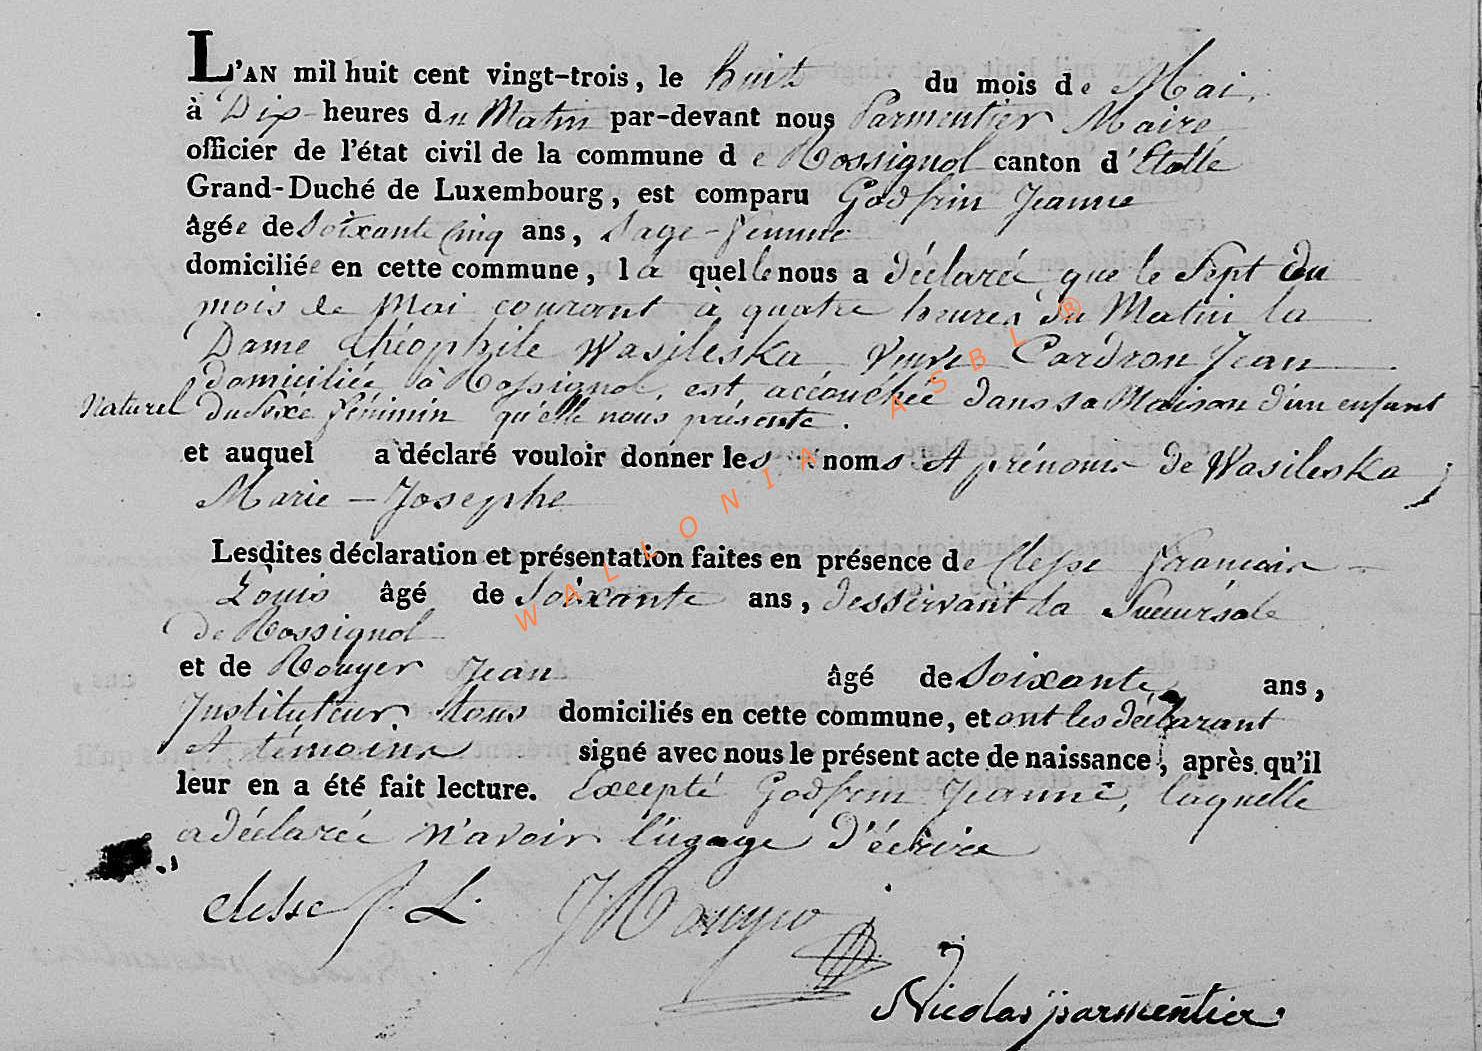 L'AN mil huit cent vingt-trois, le huit du mois de Mai,
à Dix heures du Matin par-devant nous Parmentier Maire
officier de l'état civil de la commune de Rossignol canton d'Etalle
Grand-Duché de Luxembourg, est comparu Godfrin Jeanne
âgée de Soixante Cinq ans, Sage-femme
domiciliée en cette commune, laquelle nous a déclarée que le Sept du
mois de Mai courant à quatre heures du Matin la
Dame théophile Wasileska Veuve Cardron Jean
domiciliée à Rossignol, est accouchée dans sa Maison d'un enfant
Naturel du Sexe féminin qu'elle nous présente.
et auquel a déclaré vouloir donner les noms et prénoms de Wasileska
Marie-Josephe
Lesdites déclaration et présentation faites en présence de Clesse francois
Louis âgé de Soixante ans, desservant la Succursale
de Rossignol
et de Rouyer Jean âgé de Soixante ans,
Instituteur, tous domiciliés en cette commune, et ont les déclarant
et témoins signé avec nous le présent acte de naissance, après qu'il
leur en a été fait lecture. Excepté Godfrin Jeanne, laquelle
a déclarée n'avoir l'ugage d'écrire
clesse f. L. J. Rouyer
Nicolas parmentier
WALLONIA ASBL ®